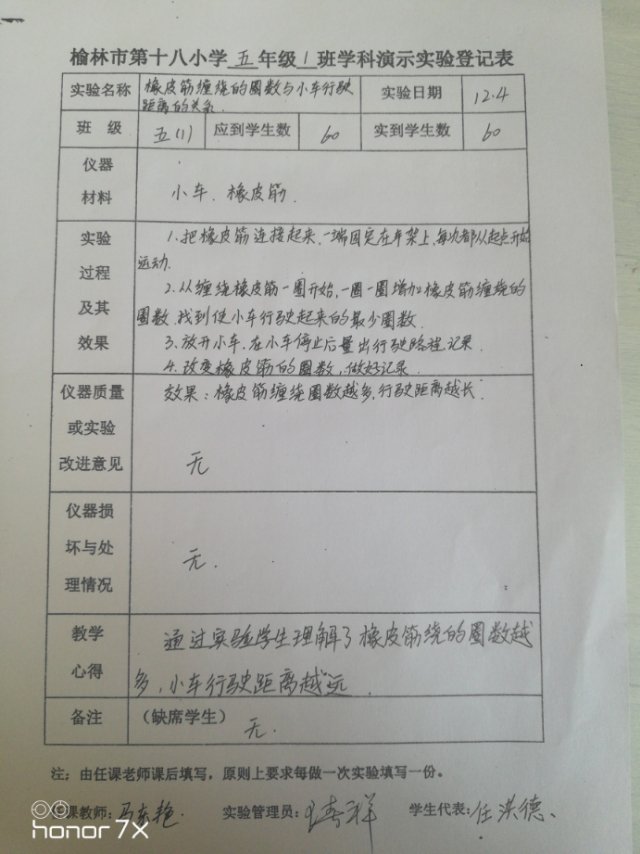 榆林市第十八小学五年级1班学科演示实验登记表
实验名称 橡皮筋缠绕的圈数与小车行驶距离的关系 实验日期 12.4
班 级 五(1) 应到学生数 60 实到学生数 60
仪器
材料 小车、橡皮筋.
实验
过程
及其
效果
1.把橡皮筋连接起来,一端固定在车架上,每次都从起点开始
运动.
2.从缠绕橡皮筋一圈开始,一圈一圈增加橡皮筋缠绕的
圈数,找到使小车行驶起来的最少圈数.
3.放开小车,在小车停止后量出行驶路程记录.
4.改变橡皮筋的圈数,做好记录.
效果:橡皮筋缠绕圈数越多,行驶距离越长.
仪器质量
或实验
改进意见 无
仪器损
坏与处
理情况 无.
教学
心得
通过实验学生理解了橡皮筋绕的圈数越
多,小车行驶距离越远.
备注 (缺席学生) 无.
注:由任课老师课后填写,原则上要求每做一次实验填写一份。
课教师: 马 艳. 实验管理员: 祥 学生代表:任洪德、
honor 7X